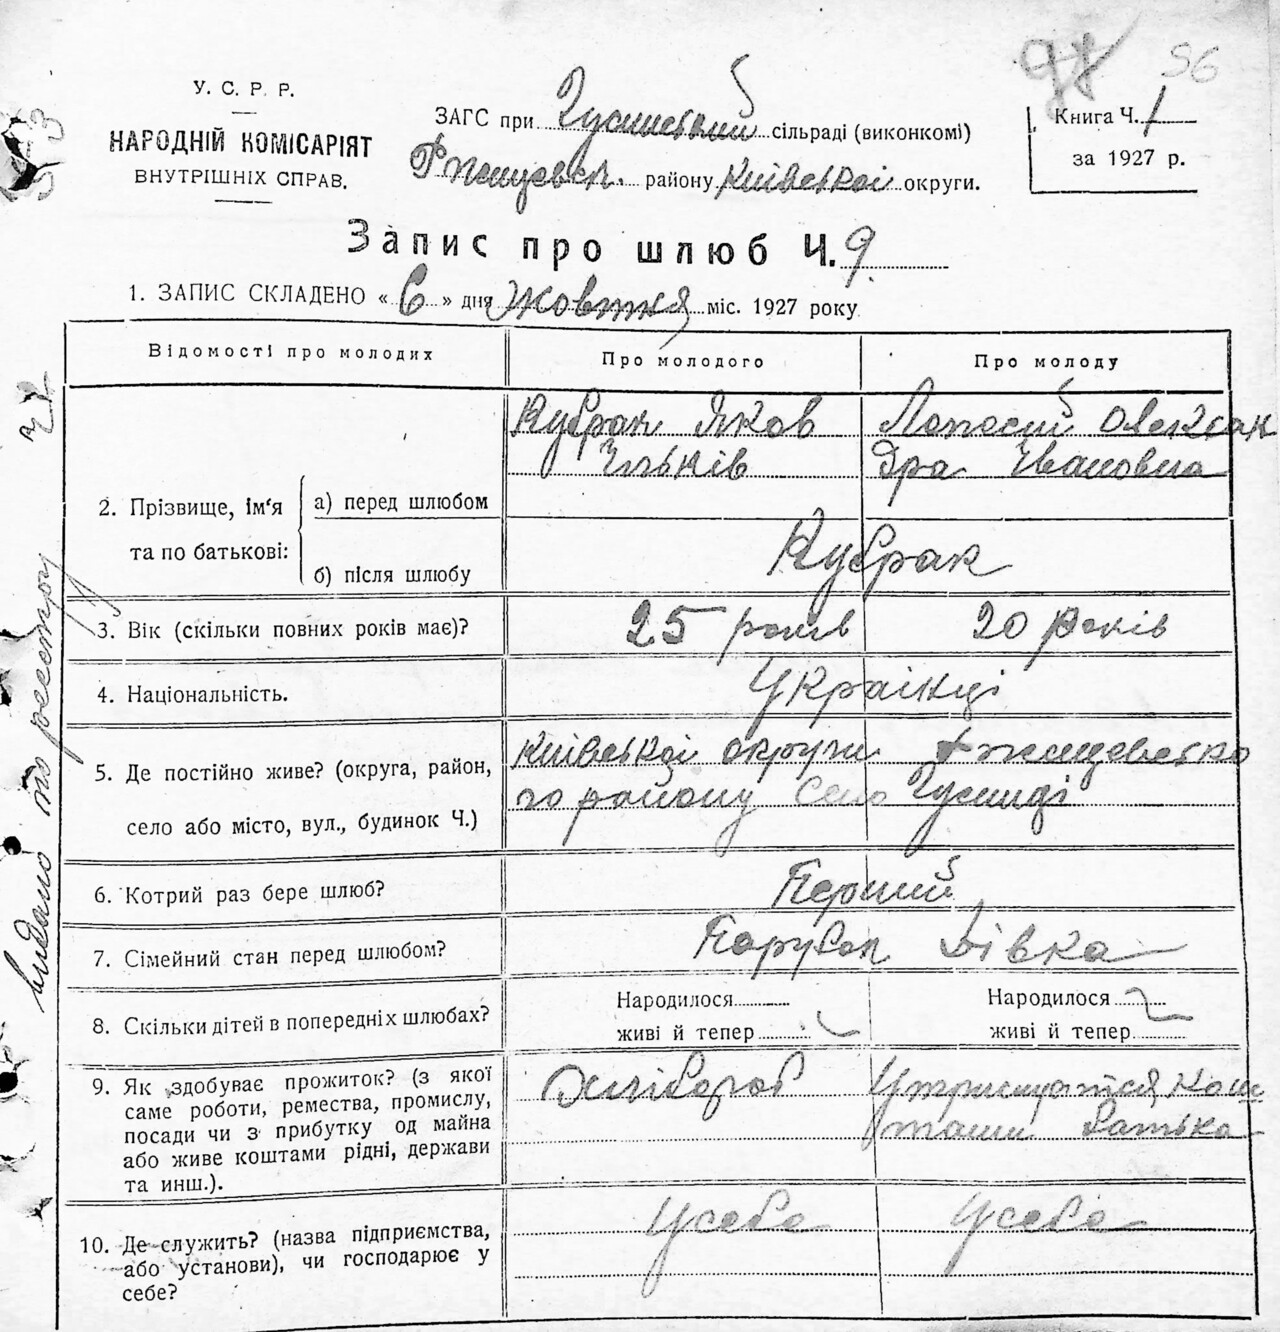 96
У. С. Р. Р.
НАРОДНІЙ КОМІСАРІЯТ
ВНУТРІШНІХ СПРАВ.
ЗАГС при Гусинський сільраді (виконкомі)
Ржищевськ. району Київської округи.
Книга Ч. 1
за 1927 р.
Запис про шлюб Ч. 9
1. ЗАПИС СКЛАДЕНО « 6 » дня Жовтня міс. 1927 року
Відомості про молодих
Про молодого
Про молоду
2. Прізвище, ім'я
та по батькові:
а) перед шлюбом
Кубрак Яков
Ільків
Олексан
дра Івановна
б) після шлюбу
Кубрак
3. Вік (скільки повних років має)?
25 років
20 років
4. Національність.
Українці
5. Де постійно живе? (округа, район,
село або місто, вул., будинок Ч.)
Київської округи Ржищевсько
го району село Гусинці
6. Котрий раз бере шлюб?
Перший
7. Сімейний стан перед шлюбом?
Парубок Дівка
8. Скільки дітей в попередніх шлюбах?
Народилося
живі й тепер
Народилося
живі й тепер
9. Як здобуває прожиток? (з якої
саме роботи, ремества, промислу,
посади чи з прибутку од майна
або живе коштами рідні, держави
та инш.).
Хлібороб
Утримується кош
тами батька
10. Де служить? (назва підприємства,
або установи), чи господарює у
себе?
У себе
У себе
видано по реєстру